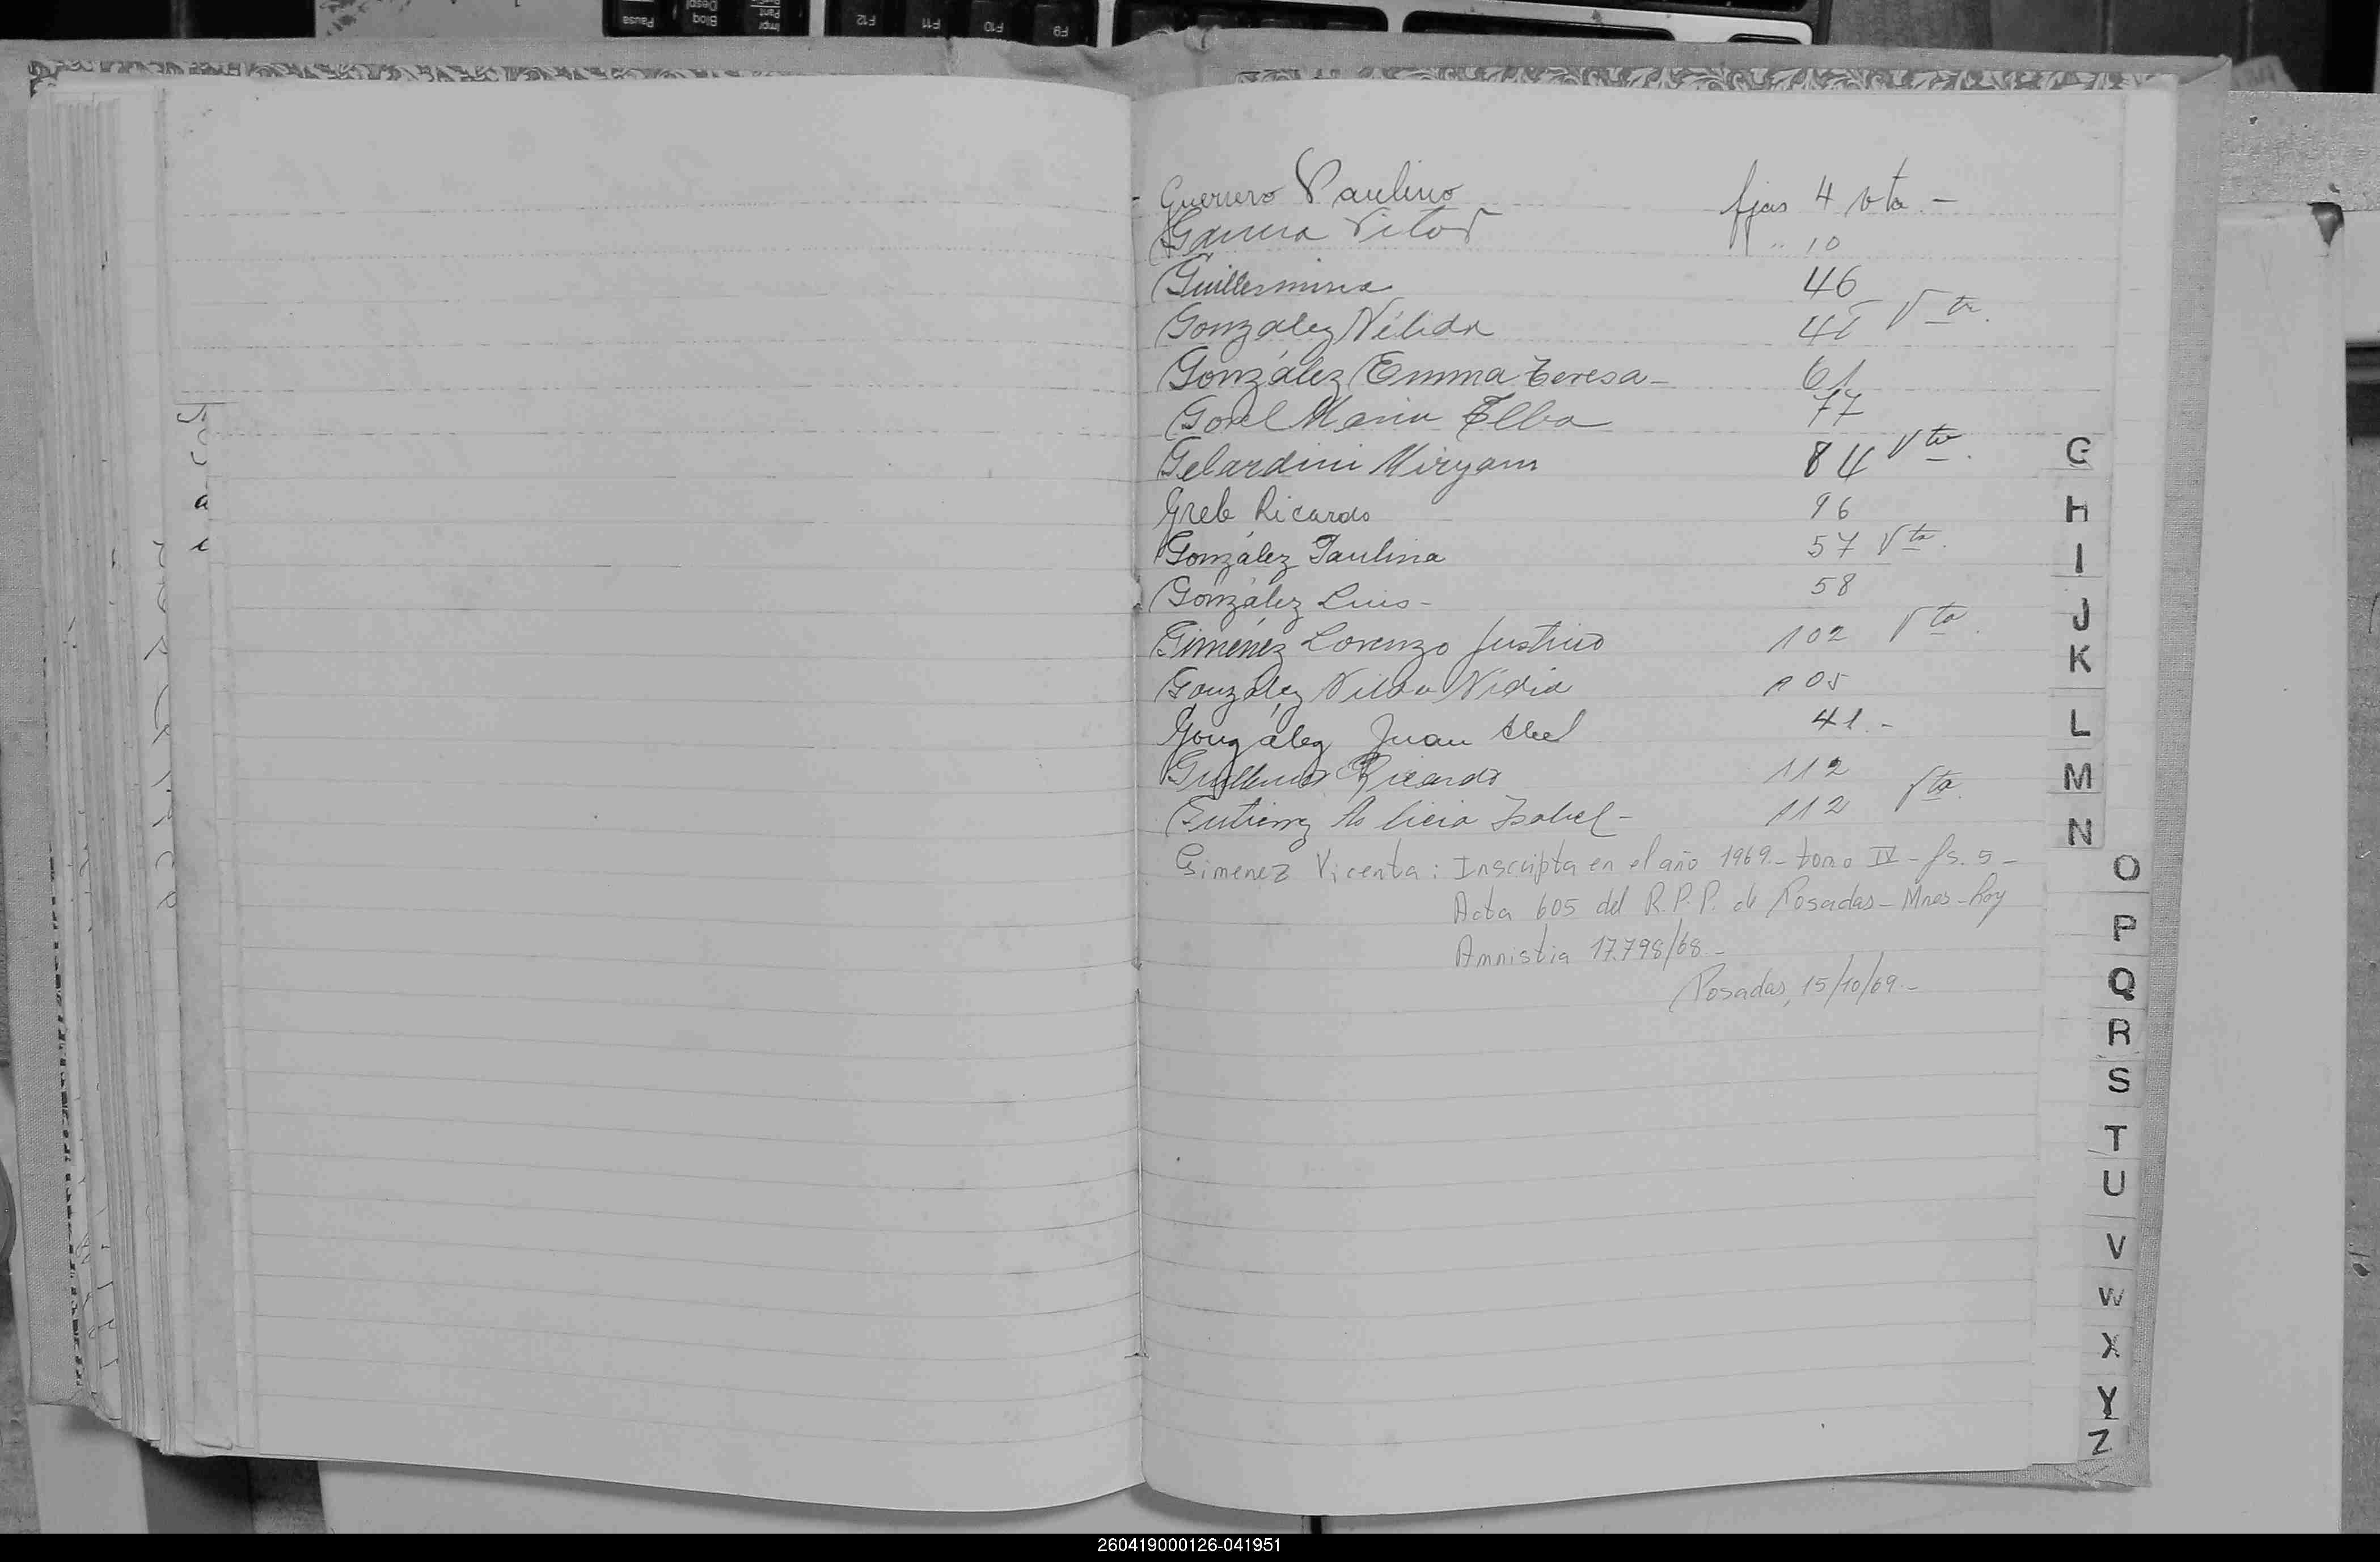 Guerrero Paulino fjas 4 vta.-
Garcia Vitor " 10
Guillermina 46
González Nélida 46 Vta.
González Emma Teresa- 61
Gorel Maria Elba 77
Gelardini Miryam 84 Vta.
Greb Ricardo 96
González Paulina 57 Vta.
González Luis- 58
Giménez Lorenzo Justino 102 Vta.
González Nilda Nidia 105
González Juan Abel 41.-
Ricardo 112
Gutierrez Alicia Isabel- 112 Vta.
Gimenez Vicenta: Inscripta en el año 1969.- tomo IV - fs. 5-
Acta 605 del R.P.P. de Posadas - Mnes -
Amnistia 17.798/68.-
Posadas, 15/10/69.-
G
H
I
J
K
L
M
N
O
P
Q
R
S
T
U
V
W
X
Y
Z
260419000126-041951